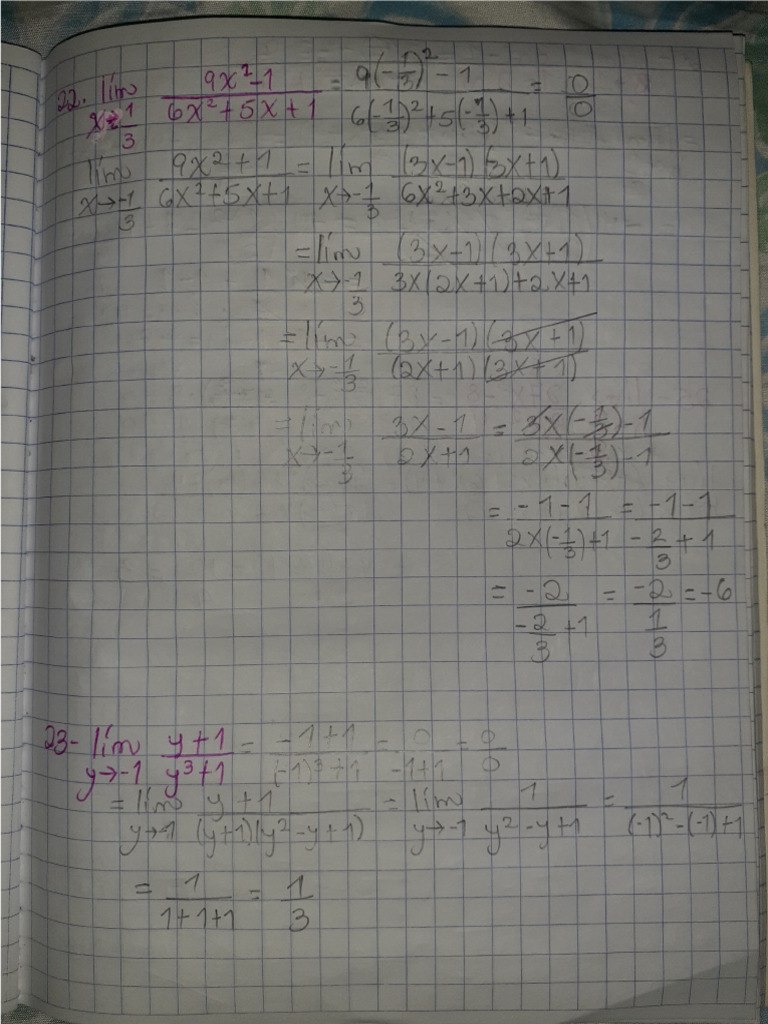 22. lím 9x²-1 / 6x²+5x+1 = 9(-1/3)²-1 / 6(-1/3)²+5(-1/3)+1 = 0/0
x→-1/3
lím 9x²+1 / 6x²+5x+1 = lím (3x-1)(3x+1) / 6x²+3x+2x+1
x→-1/3 x→-1/3
=lím (3x-1)(3x+1) / 3x(2x+1)+2x+1
x→-1/3
=lím (3x-1)(3x+1) / (2x+1)(3x+1)
x→-1/3
=lím 3x-1 / 2x+1 = 3x(-1/3)-1 / 2x(-1/3)-1
x→-1/3
= -1-1 / 2x(-1/3)+1 = -1-1 / -2/3+1
= -2 / -2/3+1 = -2 / 1/3 = -6
23- lím y+1 / y³+1 = -1+1 / (-1)³+1 = 0 / -1+1 = 0/0
y→-1
= lím y+1 / (y+1)(y²-y+1) = lím 1 / y²-y+1 = 1 / (-1)²-(-1)+1
y→-1 y→-1
= 1 / 1+1+1 = 1/3